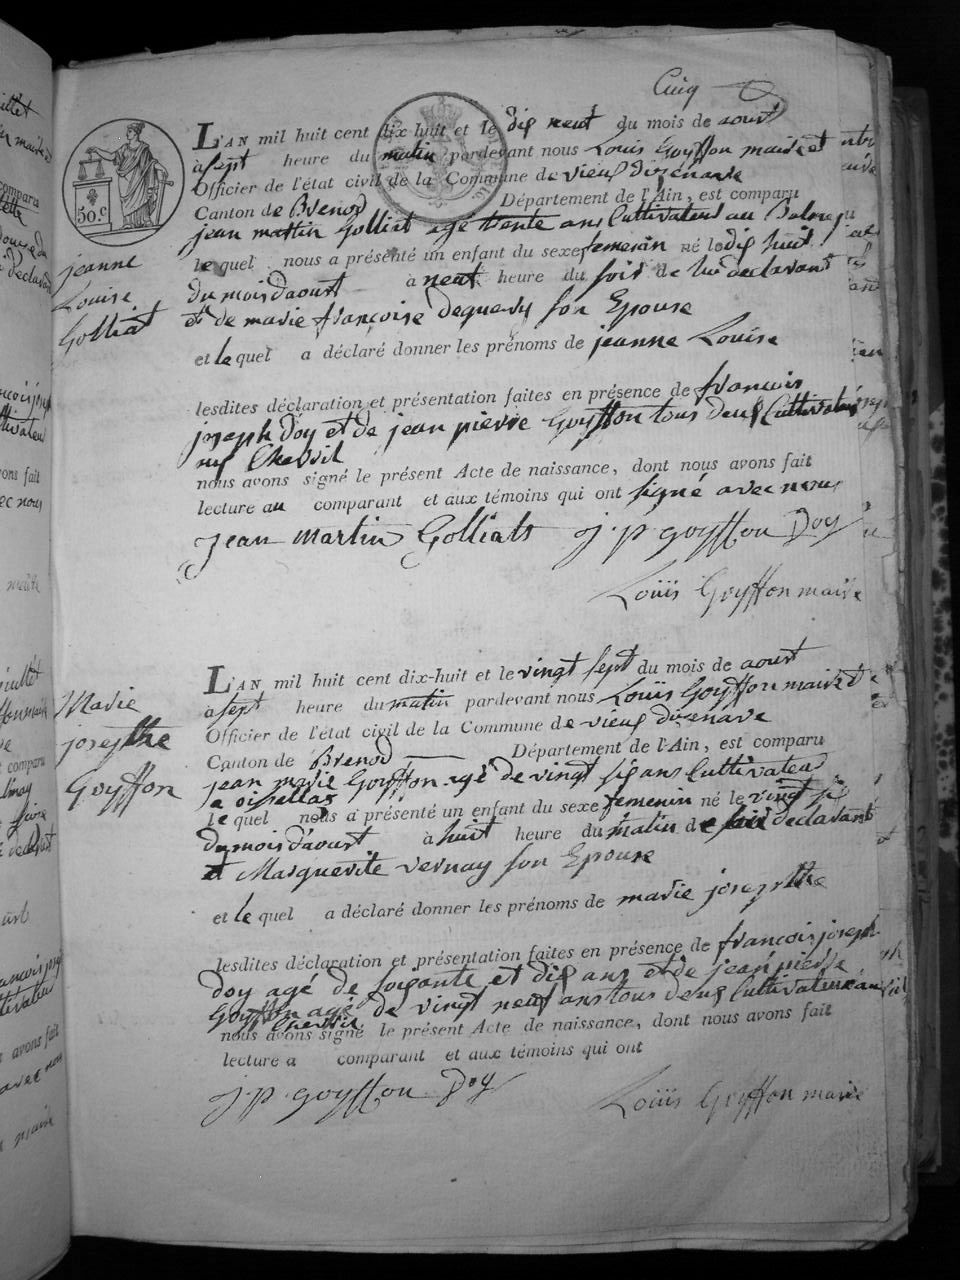 Cinq
L'AN mil huit cent dix-huit et le dix neuf du mois de aoust
à sept heure du matin pardevant nous Louis Goyffon maire et
Officier de l'état civil de la Commune de vieux dizenave
Canton de Brenod Département de l'Ain, est comparu
jean martin Golliat agé trente ans Cultivateur au
le quel nous a présenté un enfant du sexe femenin né le dix huit
du mois d'aoust à neuf heure du soir de lui declarant
et de marie françoise deguery son Epouse
et le quel a déclaré donner les prénoms de jeanne Louise
lesdites déclaration et présentation faites en présence de francois
joseph Doy et de jean pierre Goyffon tous deux Cultivateur
nous avons signé le présent Acte de naissance, dont nous avons fait
lecture au comparant et aux témoins qui ont signé avec nous
jean martin Golliat j p goyffon Doy
Louis Goyffon maire
50 c
jeanne
Louise
Golliat
L'AN mil huit cent dix-huit et le vingt sept du mois de aoust
à sept heure du matin pardevant nous Louis Goyffon maire et
Officier de l'état civil de la Commune de vieux dizenave
Canton de Brenod Département de l'Ain, est comparu
jean marie Goyffon agé de vingt six ans Cultivateur
a oisellas
le quel nous a présenté un enfant du sexe femenin né le vingt six
du mois d'aoust à huit heure du matin de declarant
et Marguerite vernay son Epouse
et le quel a déclaré donner les prénoms de marie josephte
lesdites déclaration et présentation faites en présence de francois joseph
doy agé de soixante et dix ans et de jean pierre
Goyffon agé de vingt neuf ans tous deux Cultivateur au
nous avons signé le présent Acte de naissance, dont nous avons fait
lecture a comparant et aux témoins qui ont
j. p. goyffon Doy Louis Goyffon maire
Marie
josephte
Goyffon